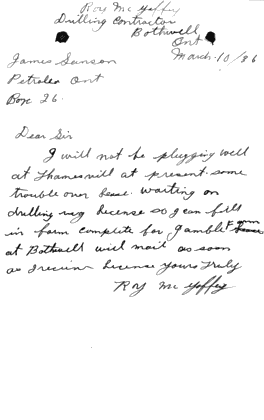 Roy Mc Yoffey
Drilling Contractor
Bothwell
Ont
March 10/86
James Sanson
Petrolea Ont
Box 26.
Dear Sir
I will not be plugging well
at Thamesvill at present some
trouble over lease. Waiting on
drilling rig license so I can fill
in form complete for Gamble Farm
at Bothwell will mail as soon
as I recieve license Yours Truly
Roy Mc Yoffey